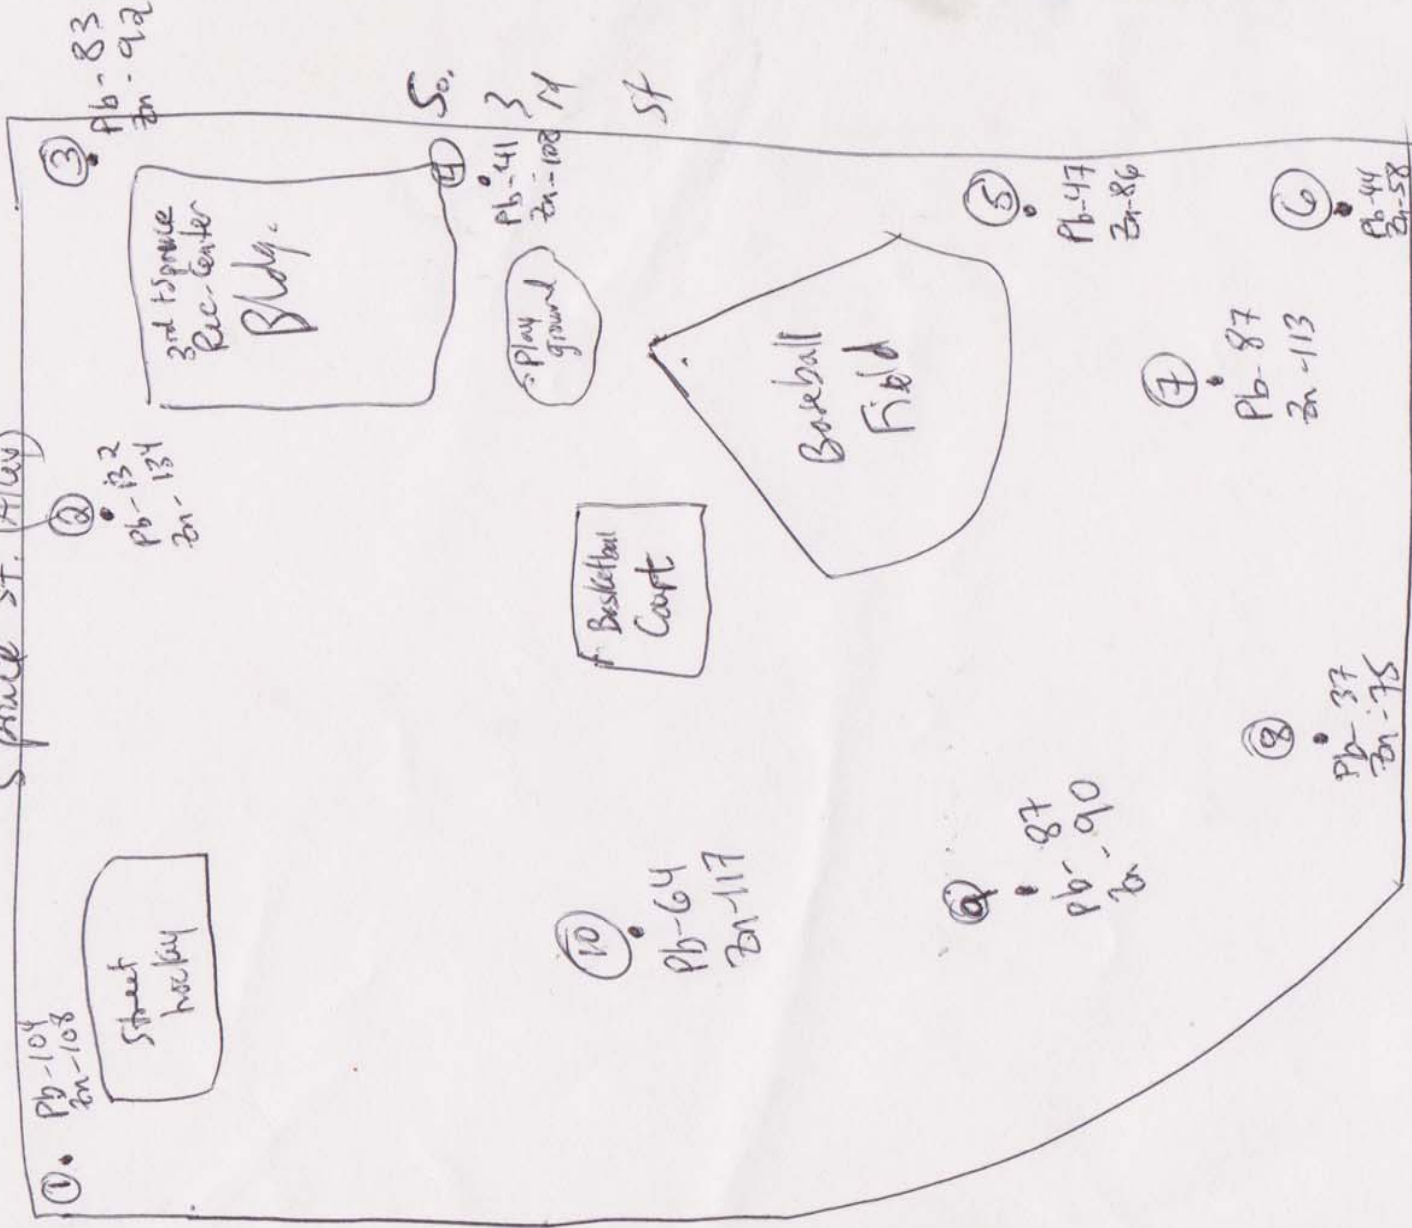 Spruce St. (Alley)
①
Pb-104
Zn-108
Street
hockey
②
Pb-132
Zn-134
③
Pb-83
Zn-92
3rd + Spruce
Rec-Center
Bldg.
So.
3
St
④
Pb-41
Zn-108
Play
ground
Basketball
Court
Baseball
Field
⑤
Pb-47
Zn-86
⑥
Pb-44
Zn-58
⑦
Pb-87
Zn-113
⑧
Pb-37
Zn-75
⑨
Pb-87
Zn-90
⑩
Pb-64
Zn-117